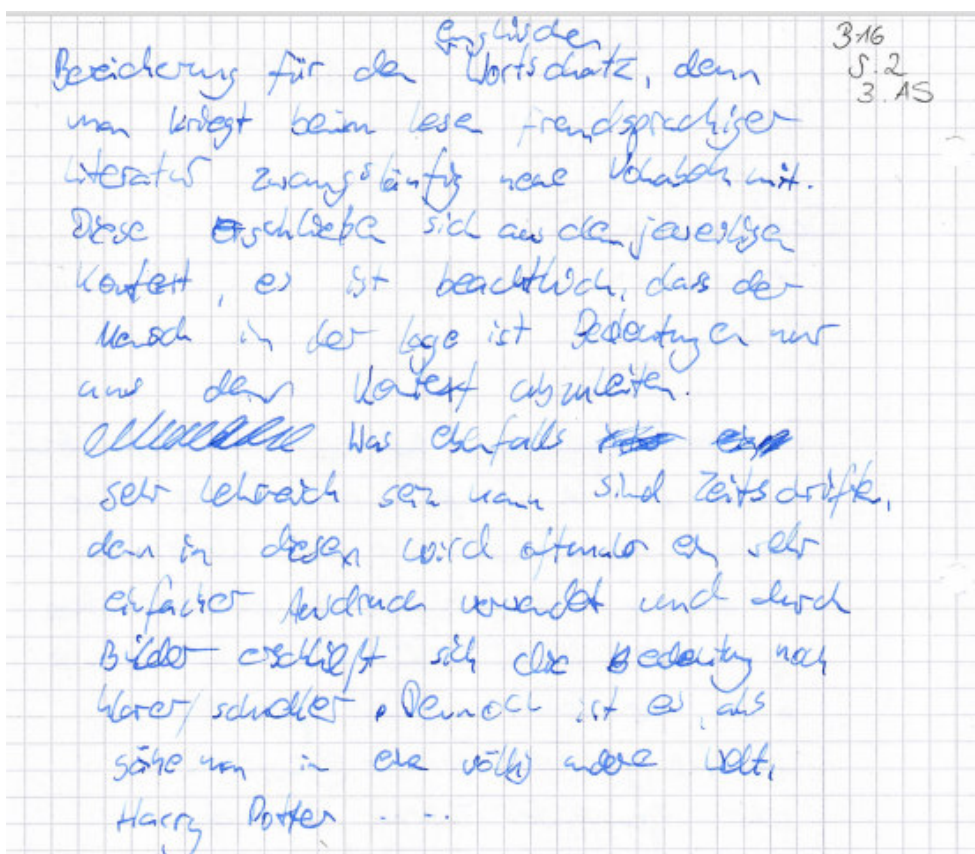 englischen
Bereicherung für den Wortschatz, denn
man kriegt beim lesen fremdsprachiger
Literatur zwangsläufig neue Vokabeln mit.
Diese erschließen sich aus dem jeweiligen
Kontext, es ist beachtlich, dass der
Mensch in der Lage ist Bedeutungen nur
aus dem Kontext abzuleiten.
Was ebenfalls
sehr lehrreich sein kann sind Zeitschriften,
denn in diesen wird oftmals ein sehr
einfacher Ausdruck verwendet und durch
Bilder erschließt sich die Bedeutung noch
klarer/schneller. Dennoch ist es, als
sähe man in eine völlig andere Welt.
Harry Potter ....
3.16
S.2
3. AS